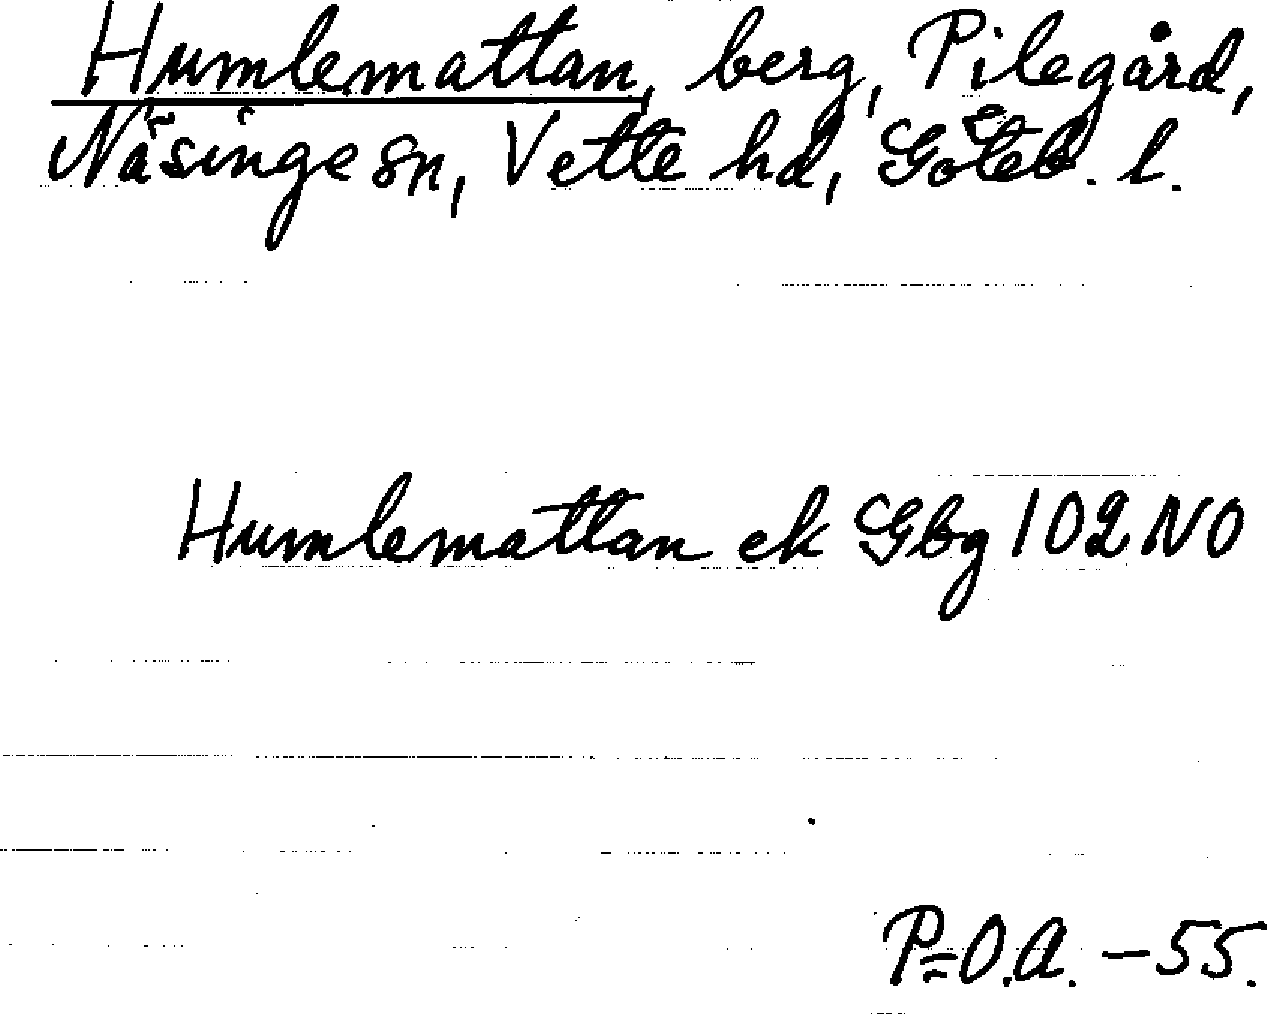 Humlemattan, berg, Pilegård,
Näsinge sn, Vette hd, Göteb. l.
Humlemattan ek Gbg 102 NO
P=O.A. -55.